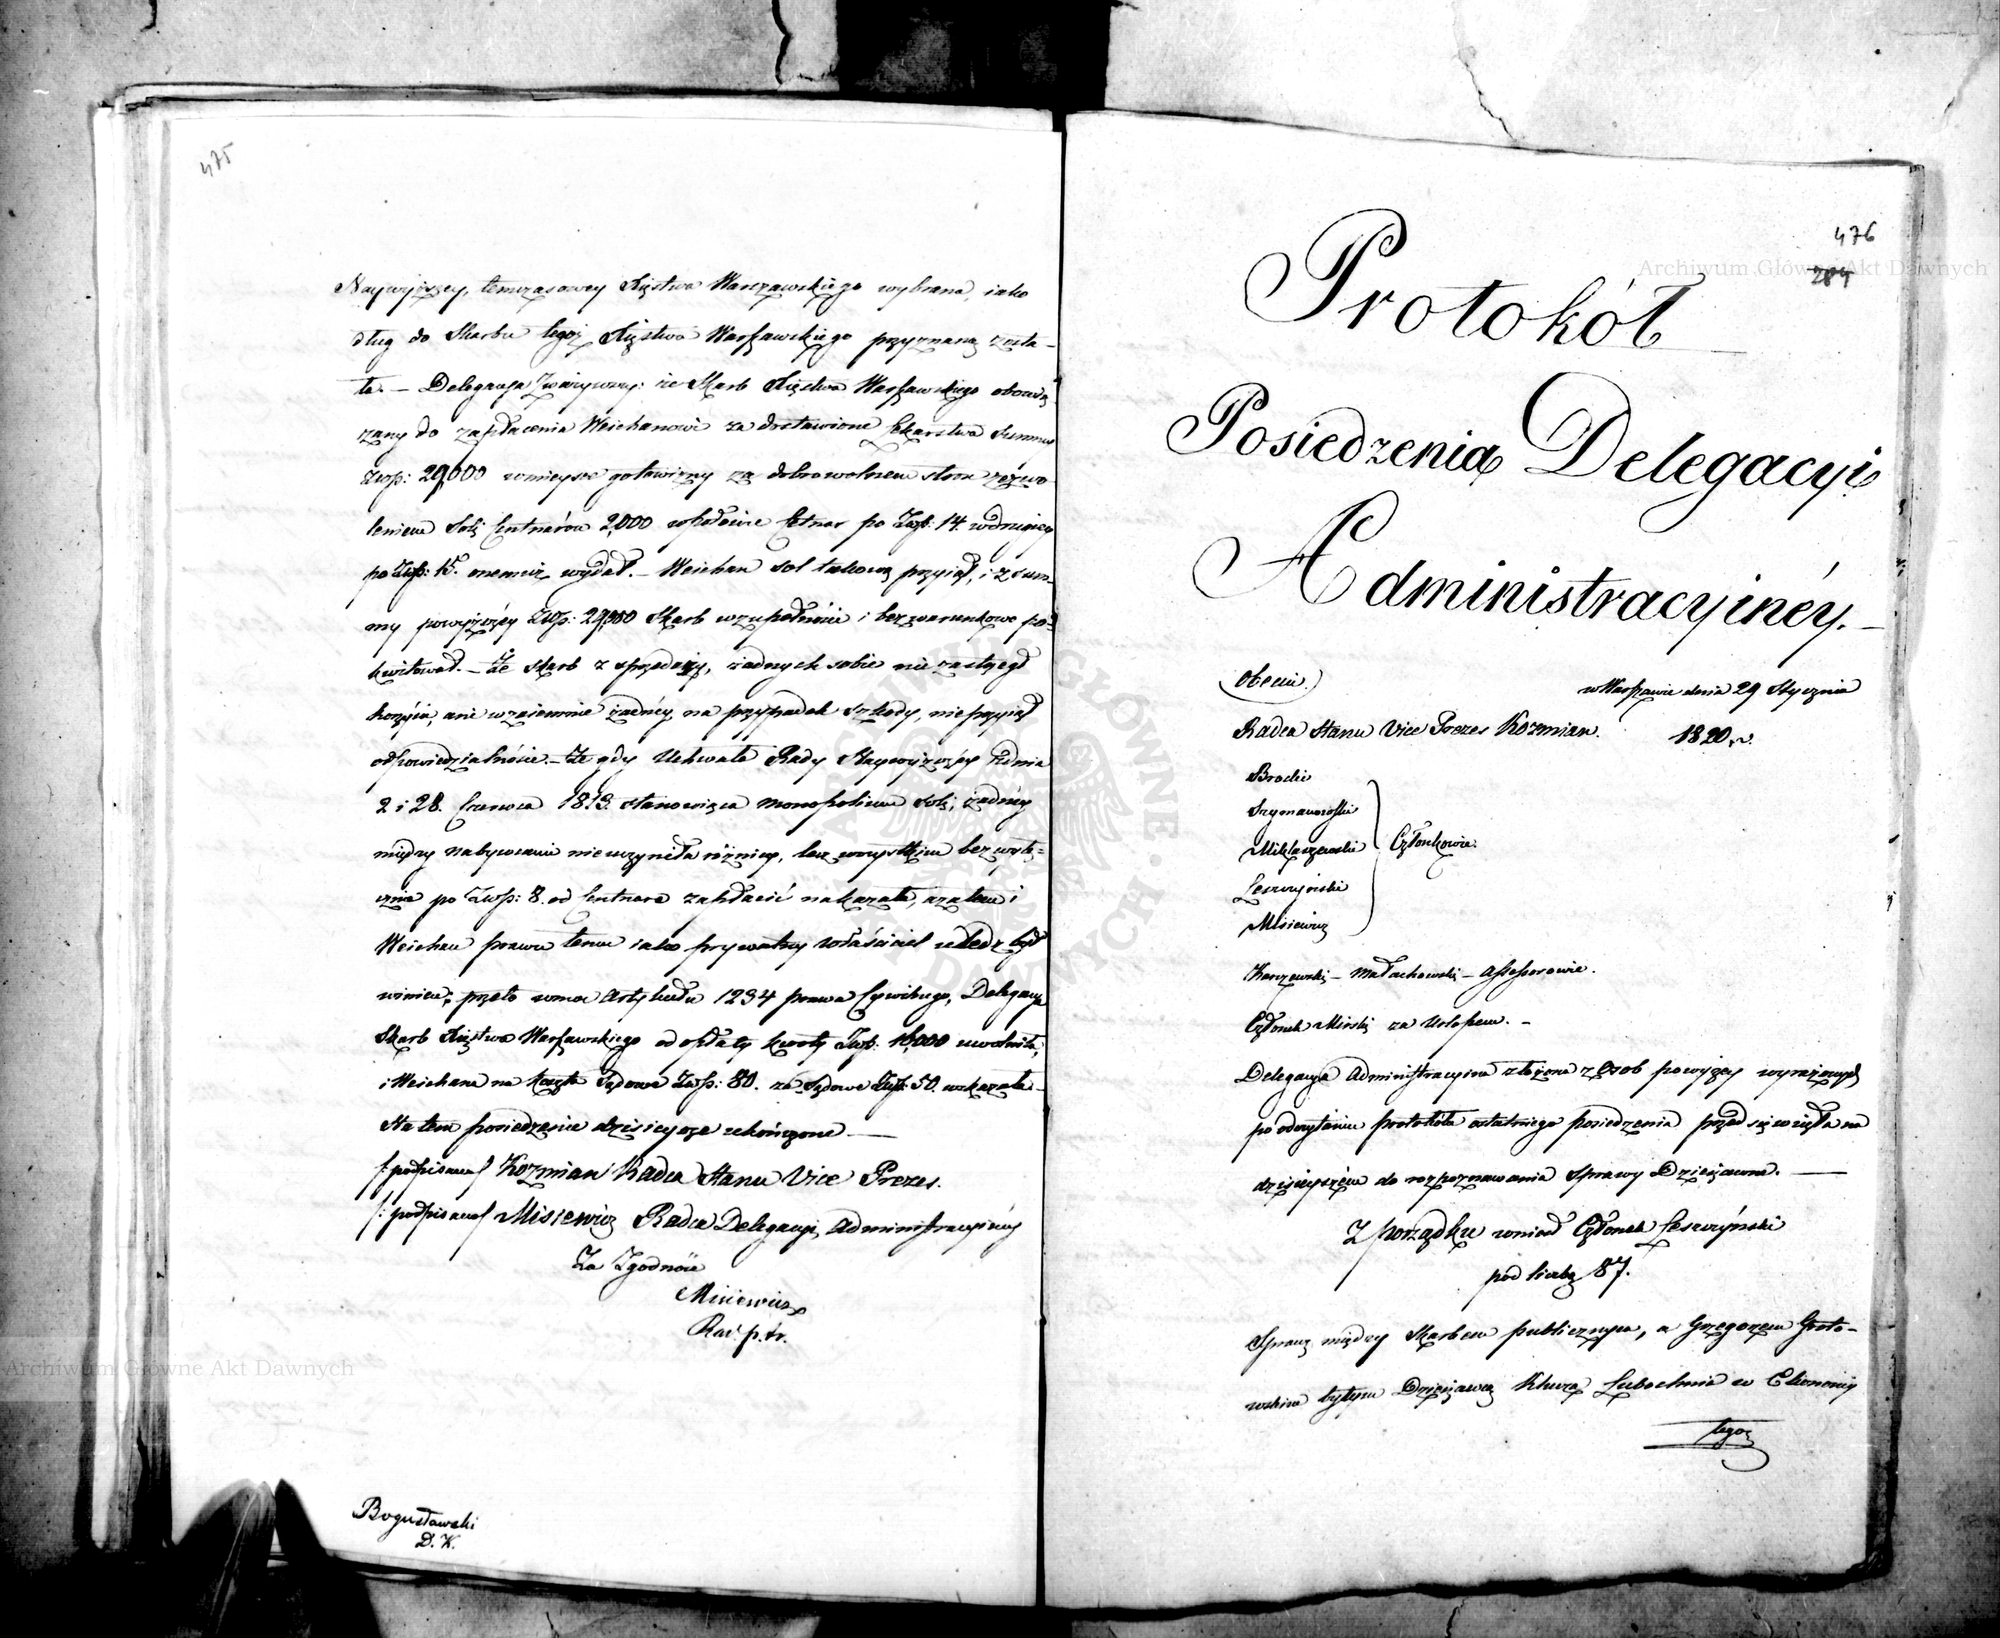 475
Naywyższey, temczasowey Xięstwa Warszawskiego wybrana, iako
dług do Skarbu tegoż Xięstwa Warszawskiego przyznaną zosta-
ła. – Delegacya Zważywszy: że Skarb Xięstwa Warszawskiego obowią
zany do zapłacenia Weichanowi za dostawione Lekarstwa Summy
Złłp: 29,000 wmieysce gotowizny za dobrowolnem stron zezwo
leniem Soli Centnarów 2,000 wpołowie Cetnar po Złłp: 14. wdrugiey
po Złłp: 15. onemuż wydał. – Weichan sol takową przyiął, i z sum-
my powyższéy Złłp: 29,000 Skarb wzupełności i bezwarunkowo po-
kwitował. – Że skarb z sprzedaży, żadnych sobie nie zastrzegł
korzyści, ani wzaiemnie żadnéy na przypadek szkody, nie przyiął
odpowiedzialności. – Że gdy Uchwała Rady Naywyższéy zdnia
2 i 28. Czerwca 1813. stanowiąca monopolium soli, żadnéy
między nabywcami nie uczyniła różnicy, lecz wszystkim bez wyłą-
cznie po Złłp: 8. od Centnara zapłacić nakazała, azatem i
Weichan prawu temu iako prywatny właściciel uledz był
winien; przeto wmoc Artykułu 1234 prawa Cywilnego, Delegacya
Skarb Xięstwa Warszawskiego od opłaty kwoty Złłp: 16,000 uwolniła,
i Weichana na koszta Sądowe Złłp: 80. za Sądowe Złłp: 50. wskazała –
Na tem posiedzenie dzisieysze ukończone. —
/:podpisano/ Kozmian Radca Stanu Vice Prezes.
/:podpisano/ Misiewicz Radca Delegacyi Administracyinéy
Za Zgodność
Misiewicz
Rad: p. tr.
Bogusławski
D. K.
476
284
Protokół
Posiedzenia Delegacyi
Administracyinéy. –
Obecni.)
w Warszawie dnia 29 Stycznia
Radca Stanu Vice Prezes Kozmian.
1820. r.
Brodzic
Szymanowski
Miklaszewski
Członkowie.
Leszczyński
Misiewicz
Karczewski – Małachowski – Assessorowie.
Członek Mirski za Urlopem. –
Delegacya Administracyina złożona z Osob powyżey wyrażonych
po odczytaniu protokółu ostatniego posiedzenia przedsięwzięła na
dzisieyszém do rozpoznawania Sprawy Dzierżawne. —
Z porządku wniosł Członek Leszczyński
pod liczbą 87.
Sprawę między Skarbem publicznym, a Grzegorzem Groto-
wskim byłym Dzierżawcą Klucza Lubochnia w Ekonomij
tegoż
Archiwum Główne Akt Dawnych
Archiwum Główne Akt Dawnych